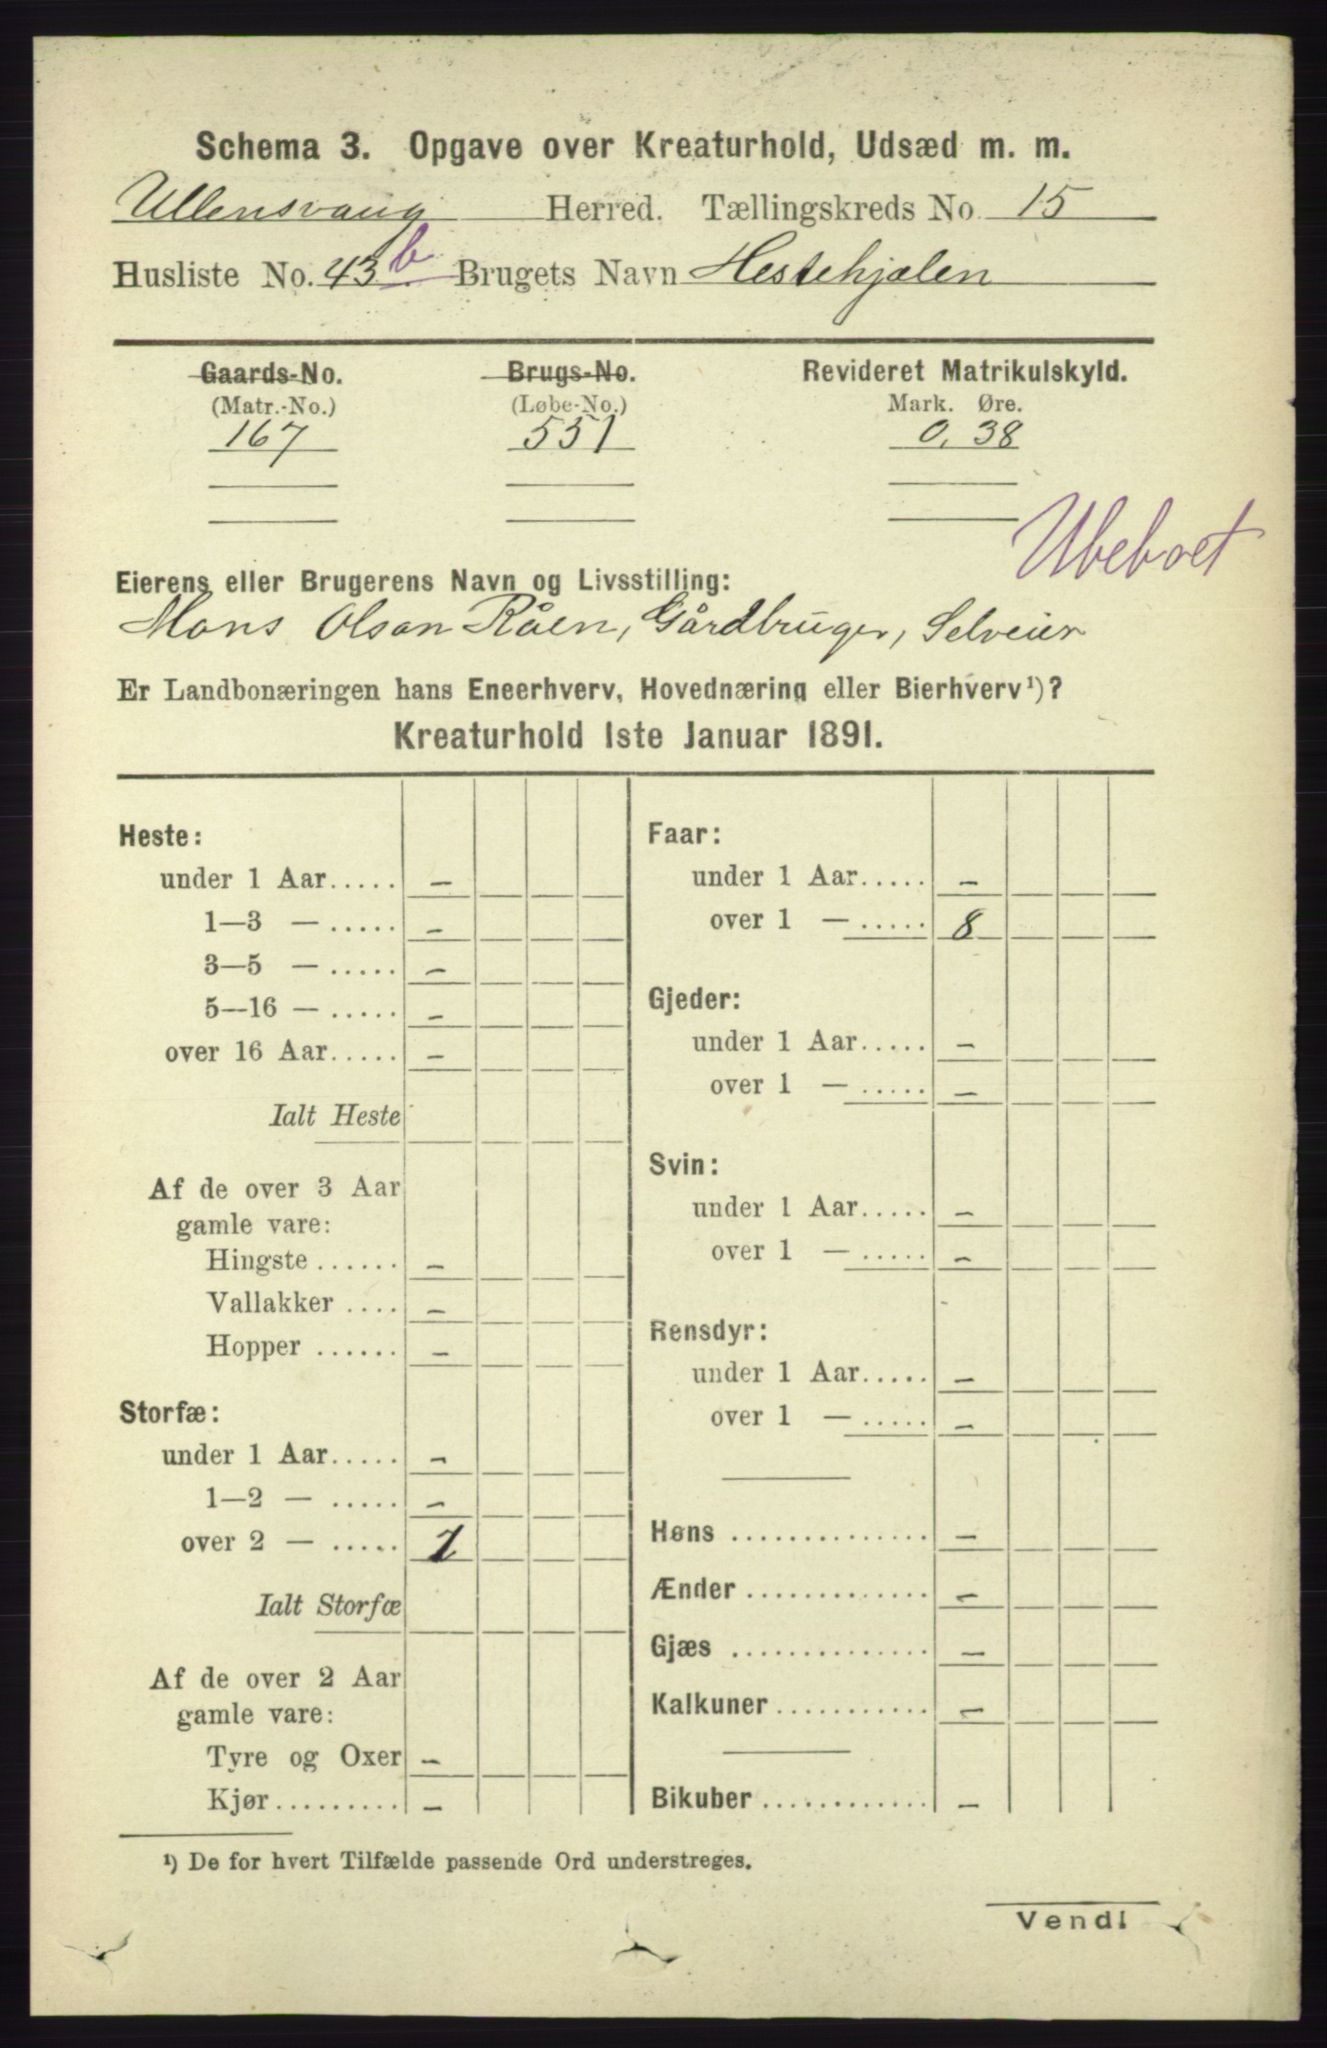 Schema 3. Opgave over Kreaturhold, Udsæd m. m.
Ullensvang Herred. Tællingskreds No. 15
Husliste No. 43 b Brugets Navn Hestehjalen
Gaards-No. Brugs-No. Revideret Matrikulskyld.
(Matr.-No.) (Løbe-No.) Mark. Øre.
167 551 0,38
Ubeboet
Eierens eller Brugerens Navn og Livsstilling:
Mons Olson Råen, Gårdbruger, Selveier
Er Landbonæringen hans Eneerhverv, Hovednæring eller Bierhverv¹)?
Kreaturhold 1ste Januar 1891.
Heste:
under 1 Aar..... –
1—3 — ..... –
3—5 — ..... –
5—16 — ..... –
over 16 Aar..... –
Ialt Heste
Af de over 3 Aar
gamle vare:
Hingste ...... –
Vallakker .... –
Hopper ...... –
Storfæ:
under 1 Aar..... –
1—2 — ..... –
over 2 — ..... 1
Ialt Storfæ
Af de over 2 Aar
gamle vare:
Tyre og Oxer –
Kjør.......... –
Faar:
under 1 Aar..... –
over 1 — ..... 8
Gjeder:
under 1 Aar..... –
over 1 — ..... –
Svin:
under 1 Aar..... –
over 1 — ..... –
Rensdyr:
under 1 Aar..... –
over 1 — ..... –
Høns .............. –
Ænder ............. –
Gjæs .............. –
Kalkuner ........... –
Bikuber ............ –
¹) De for hvert Tilfælde passende Ord understreges.
Vend!